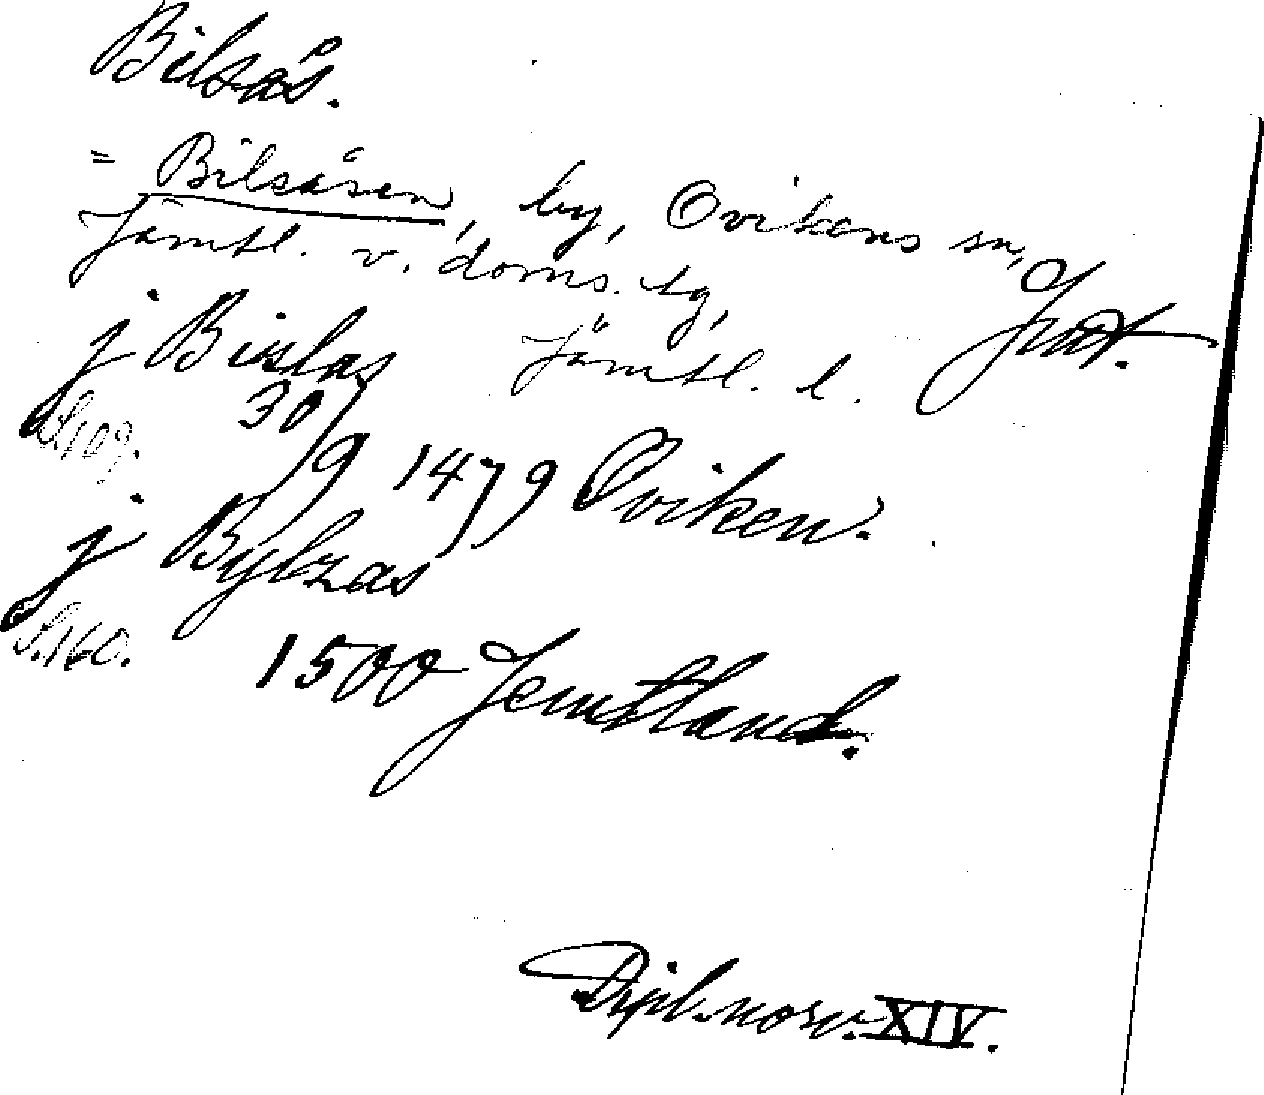 Bilsås.
= Bilsåsen, by, Ovikens sn,
Jämtl. v. doms. tg, Jmt.
j Bislas Jämtl. l.
S. 109. 30/9 1479 Oviken.
j Bylzas
S. 160. 1500 Jemtland.
Dipl. norv. XIV.